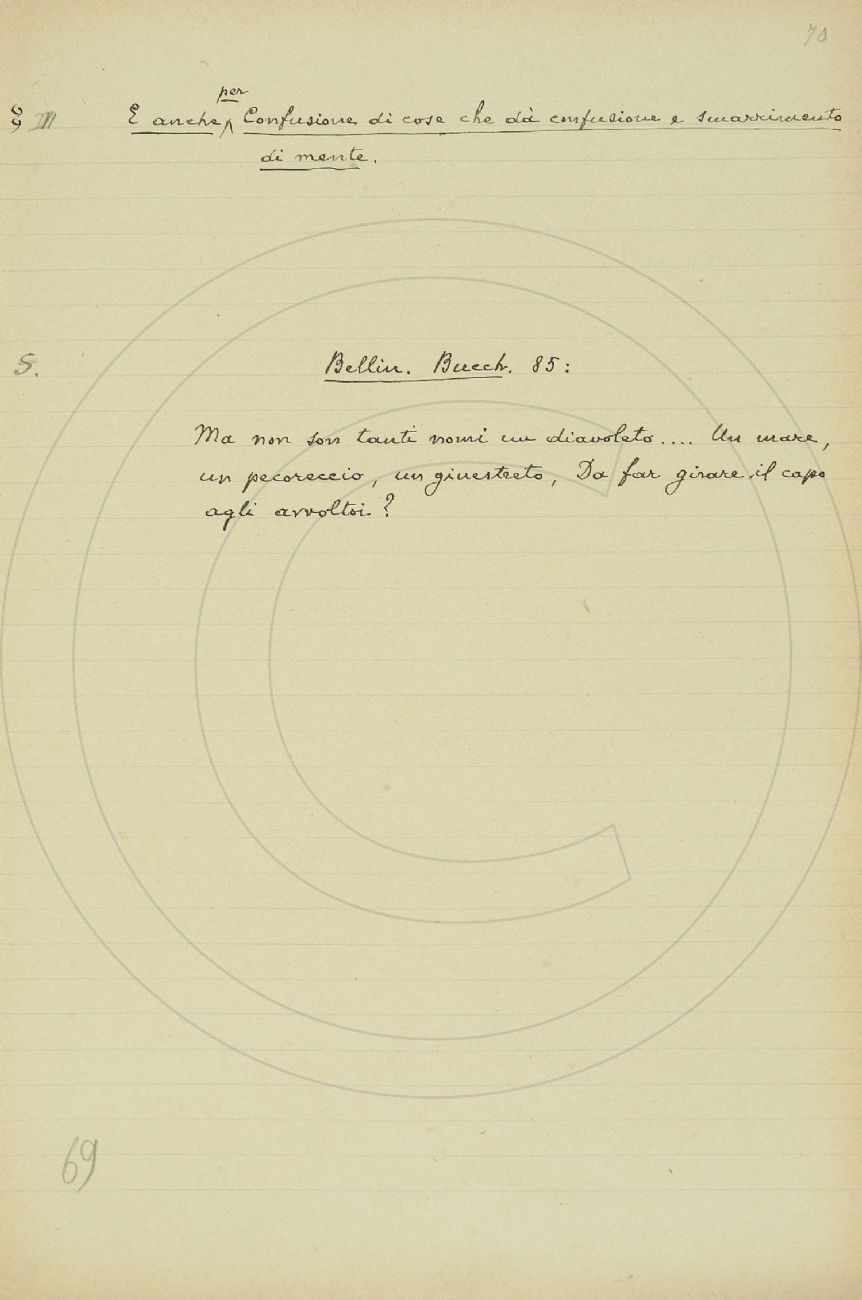 70
§§ III E anche per Confusione di cose che dà confusione e smarrimento
di mente.
S. Bellin. Bucch. 85:
Ma non son tanti nomi un diavoleto.... Un mare,
un pecoreccio, un ginestreto, Da far girare il capo
agli avvoltoi?
69